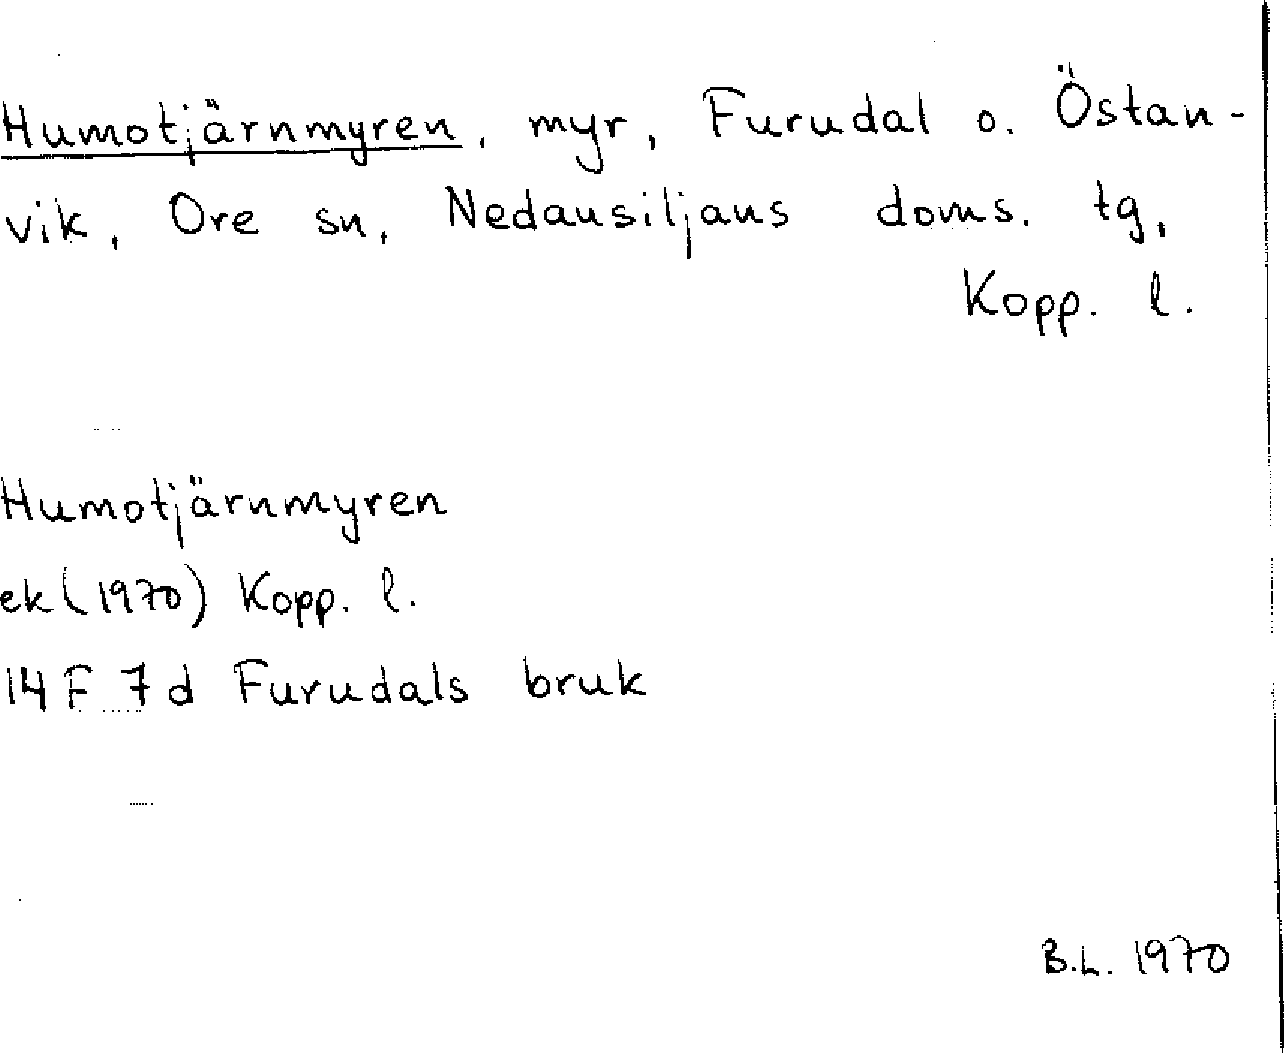 Humotjärnmyren, myr, Furudal o. Östan-
vik, Ore sn, Nedansiljans doms. tg,
Kopp. l.
Humotjärnmyren
ek (1970) Kopp. l.
14 F 7 d Furudals bruk
B.L. 1970